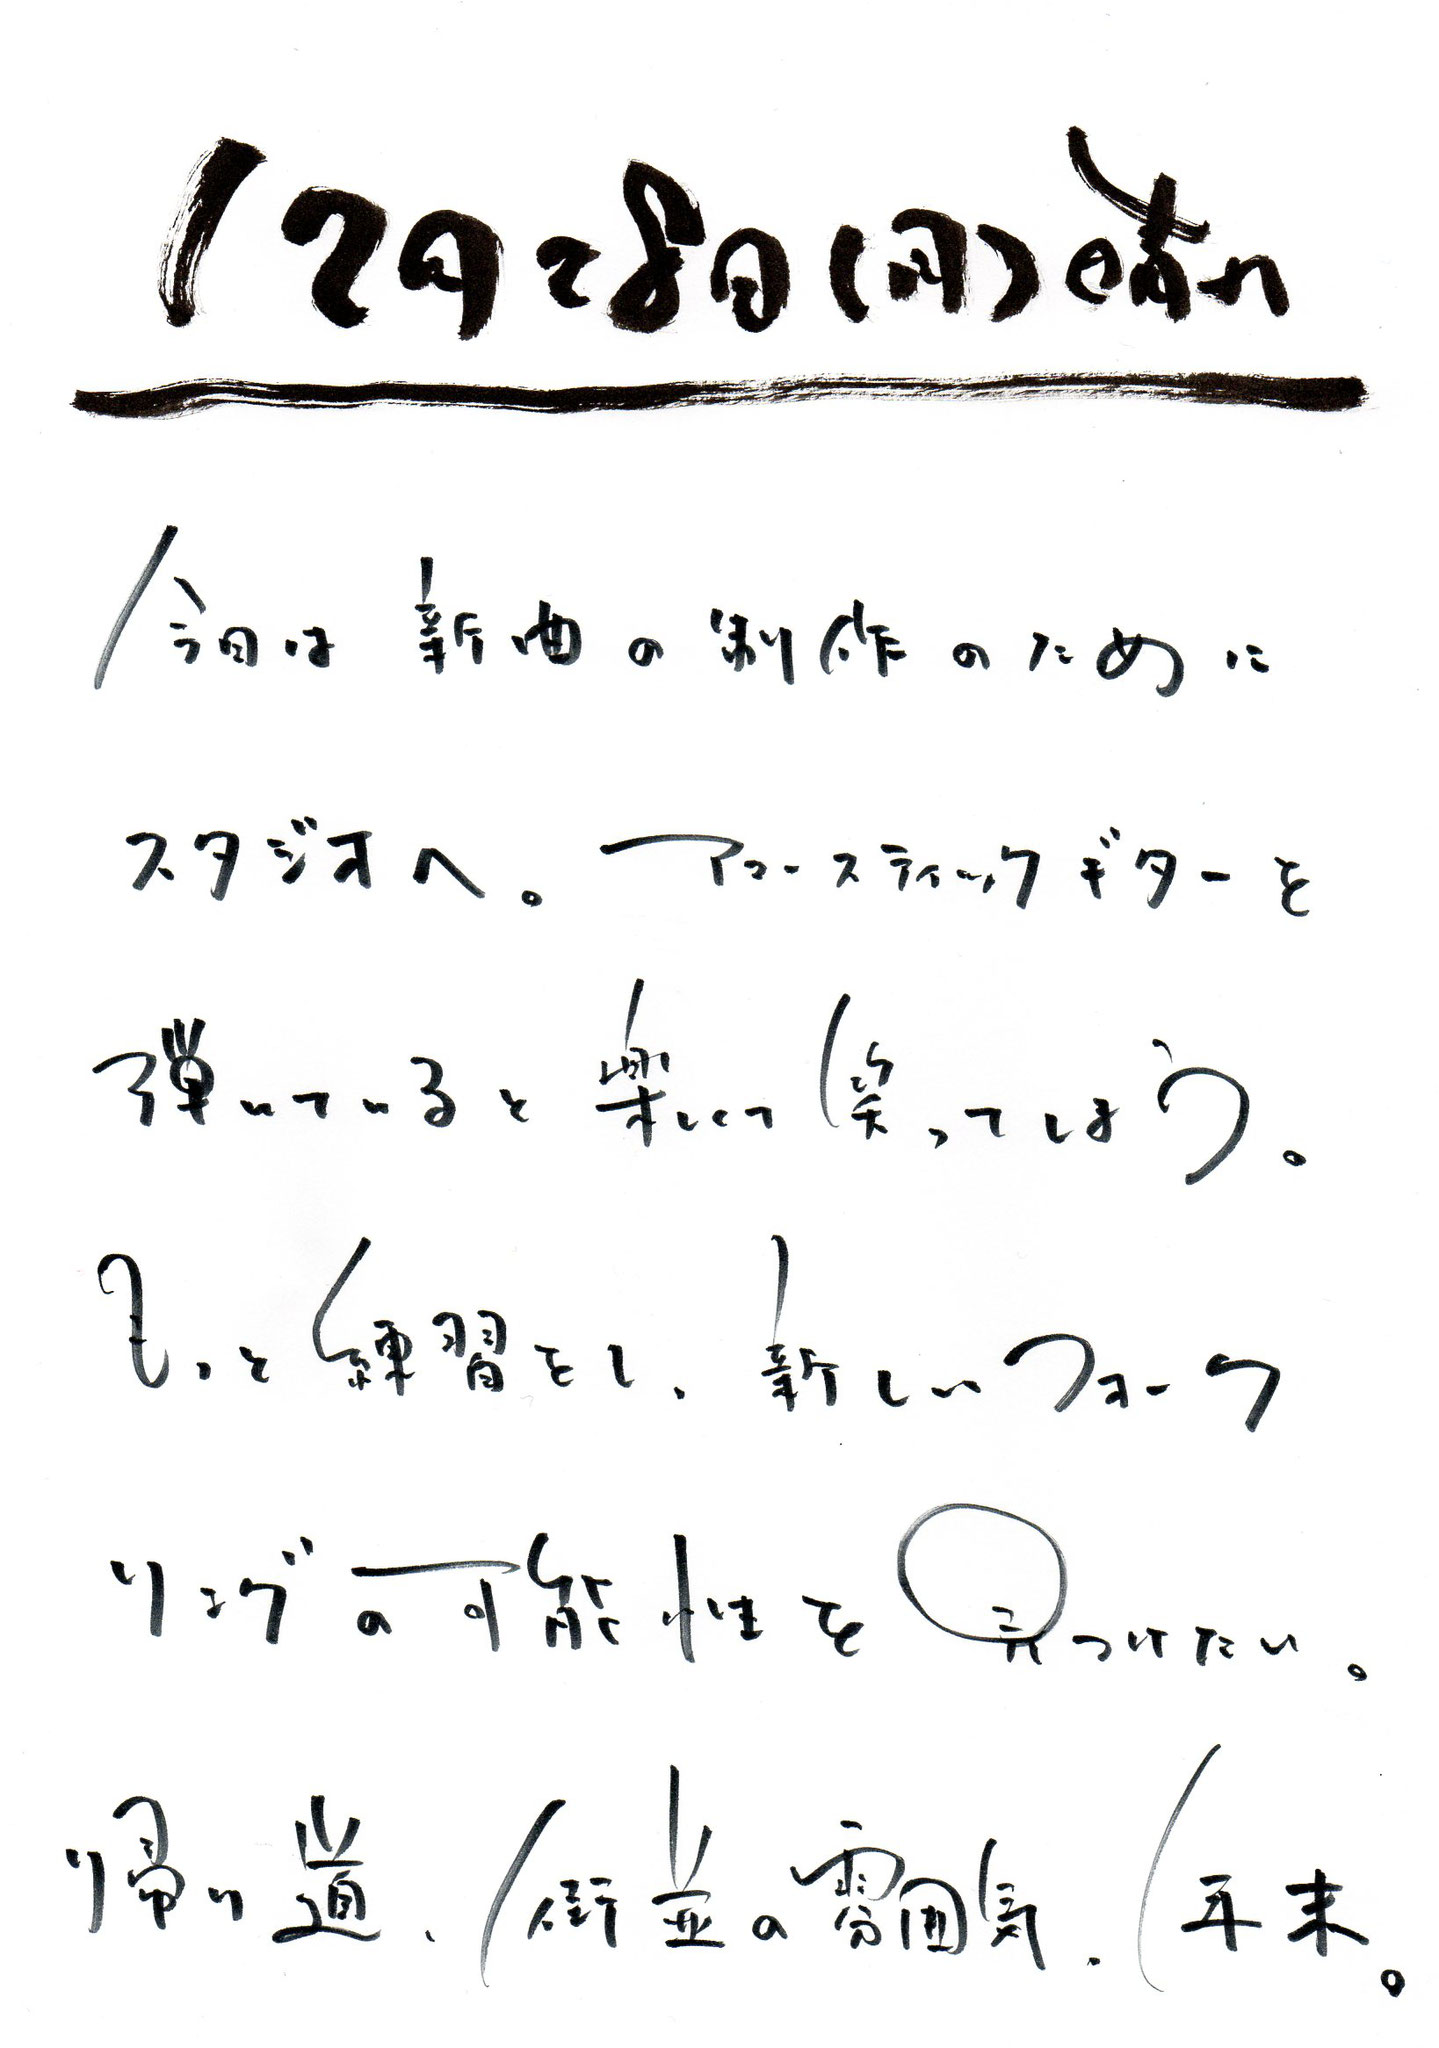 12月28日(月)晴れ
今日は新曲の制作のために
スタジオへ。アコースティックギターを
弾いていると楽しくて笑ってしまう。
もっと練習をし、新しいフォーク
ソングの可能性を見つけたい。
帰り道、街並の雰囲気、年末。